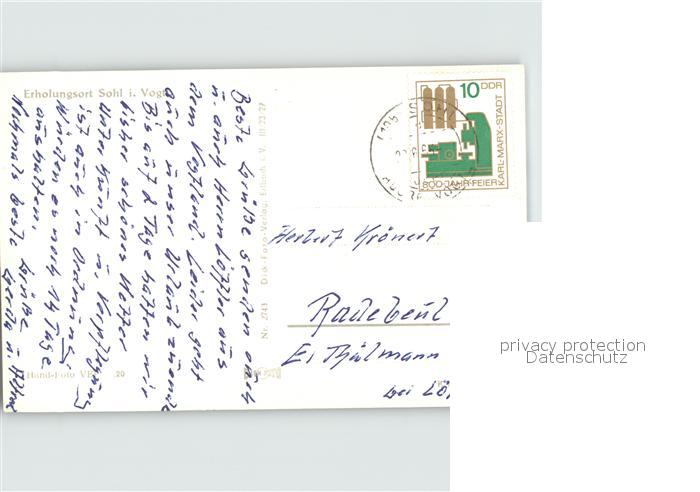 Erholungsort Sohl i. Vogtl.
Beste Grüße senden euch
u. auch Herrn Löffler aus
dem Vogtland. Leider geht
auch unser Urlaub zuende
Bis auf 2 Tage hatten wir
bisher schönes Wetter
Unterkunft u. Verpflegung
ist auch in Ordnung,
Würden es noch 14 Tage
aushalten.
Nochmals beste Grüße
Gerda u.
Hand-Foto
20
Nr. 2743 Dick-Foto-Verlag, Erlbach i. V. III 23 27
10 DDR
KARL-MARX-STADT
800-JAHR-FEIER
Herbert Krönert
Radebeul
E. Thälmann
bei Lö
privacy protection
Datenschutz